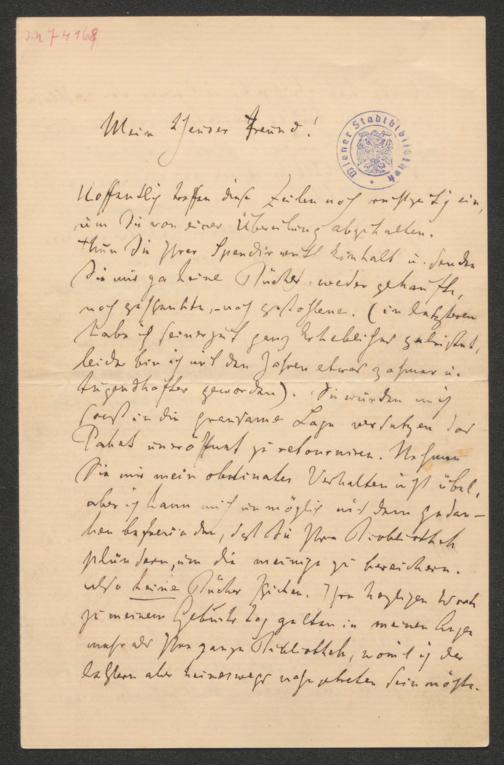 J.N. 74168
Wiener Stadtbibliothek
Mein Freund!
Hoffentlich treffen diese Zeilen noch rechtzeitig ein,
um Sie von einer Übereilung abzuhalten.
Thun Sie Ihrer Spendirwuth Einhalt u. senden
Sie mir ja keine Bücher, weder gekaufte,
noch geschenkte, noch gestohlene. (in letzterem
habe ich seinerzeit ganz Erhebliches geleistet,
leider bin ich mit den Jahren etwas zahmer u.
tugendhafter geworden). Sie würden mich
sonst in die grausame Lage versetzen das
Paket uneröffnet zu retourniren. Nehmen
Sie mir mein obstinates Verhalten nicht übel,
aber ich kann mich unmöglich mit dem Gedan-
ken befreunden, daß Sie Ihre Bibliothek
plündern, um die meinige zu bereichern.
Also keine Bücher schicken. Ihre herzlichen Worte
zu meinem Geburtstag gelten in meinen Augen
mehr als Ihre ganze Bibliothek, womit ich der
letztern aber keineswegs nahegetreten sein möchte.